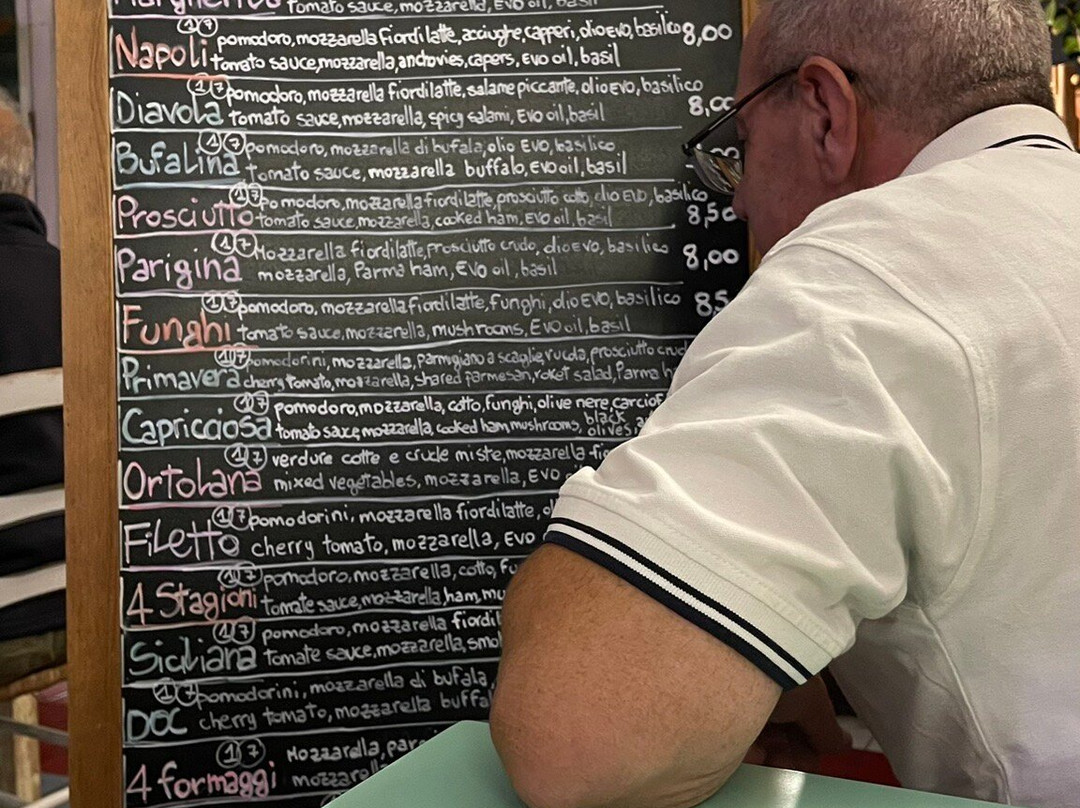 Margherita tomato sauce, mozzarella, EVO oil, basil
1 7 pomodoro, mozzarella fiordilatte, acciughe, capperi, olio EVO, basilico 8,00
Napoli tomato sauce, mozzarella, anchovies, capers, EVO oil, basil
1 7 pomodoro, mozzarella fiordilatte, salame piccante, olio EVO, basilico
Diavola tomato sauce, mozzarella, spicy salami, EVO oil, basil
1 7 pomodoro, mozzarella di bufala, olio EVO, basilico
Bufalina tomato sauce, mozzarella buffalo, EVO oil, basil
1 7 pomodoro, mozzarella fiordilatte, prosciutto cotto, olio EVO, basilico
Prosciutto tomato sauce, mozzarella, cooked ham, EVO oil, basil 8,50
1 7 Mozzarella fiordilatte, prosciutto crudo, olio EVO, basilico
Parigina mozzarella, Parma ham, EVO oil, basil 8,00
1 7 pomodoro, mozzarella fiordilatte, funghi, olio EVO, basilico 8,5
Funghi tomato sauce, mozzarella, mushrooms, EVO oil, basil
1 7 pomodorini, mozzarella, parmigiano a scaglie, rucola, prosciutto crud
Primavera cherry tomato, mozzarella, shared parmesan, roket salad, Parma h
1 7 pomodoro, mozzarella, cotto, funghi, olive nere, carciof
Capricciosa tomato sauce, mozzarella, cooked ham, mushrooms, black olives, a
1 7 verdure cotte e crude miste, mozzarella fio
Ortolana mixed vegetables, mozzarella, EVO
1 7 pomodorini, mozzarella fiordilatte, ol
Filetto cherry tomato, mozzarella, EVO
1 7 pomodoro, mozzarella, cotto, fu
4 Stagioni tomate sauce, mozzarella, ham, mu
1 7 pomodoro, mozzarella fiordil
Siciliana Tomate sauce, mozzarella, smo
1 7 pomodorini, mozzarella di bufala,
DOC cherry tomato, mozzarella buffal
1 7 Mozzarella, par
4 formaggi mozzarel